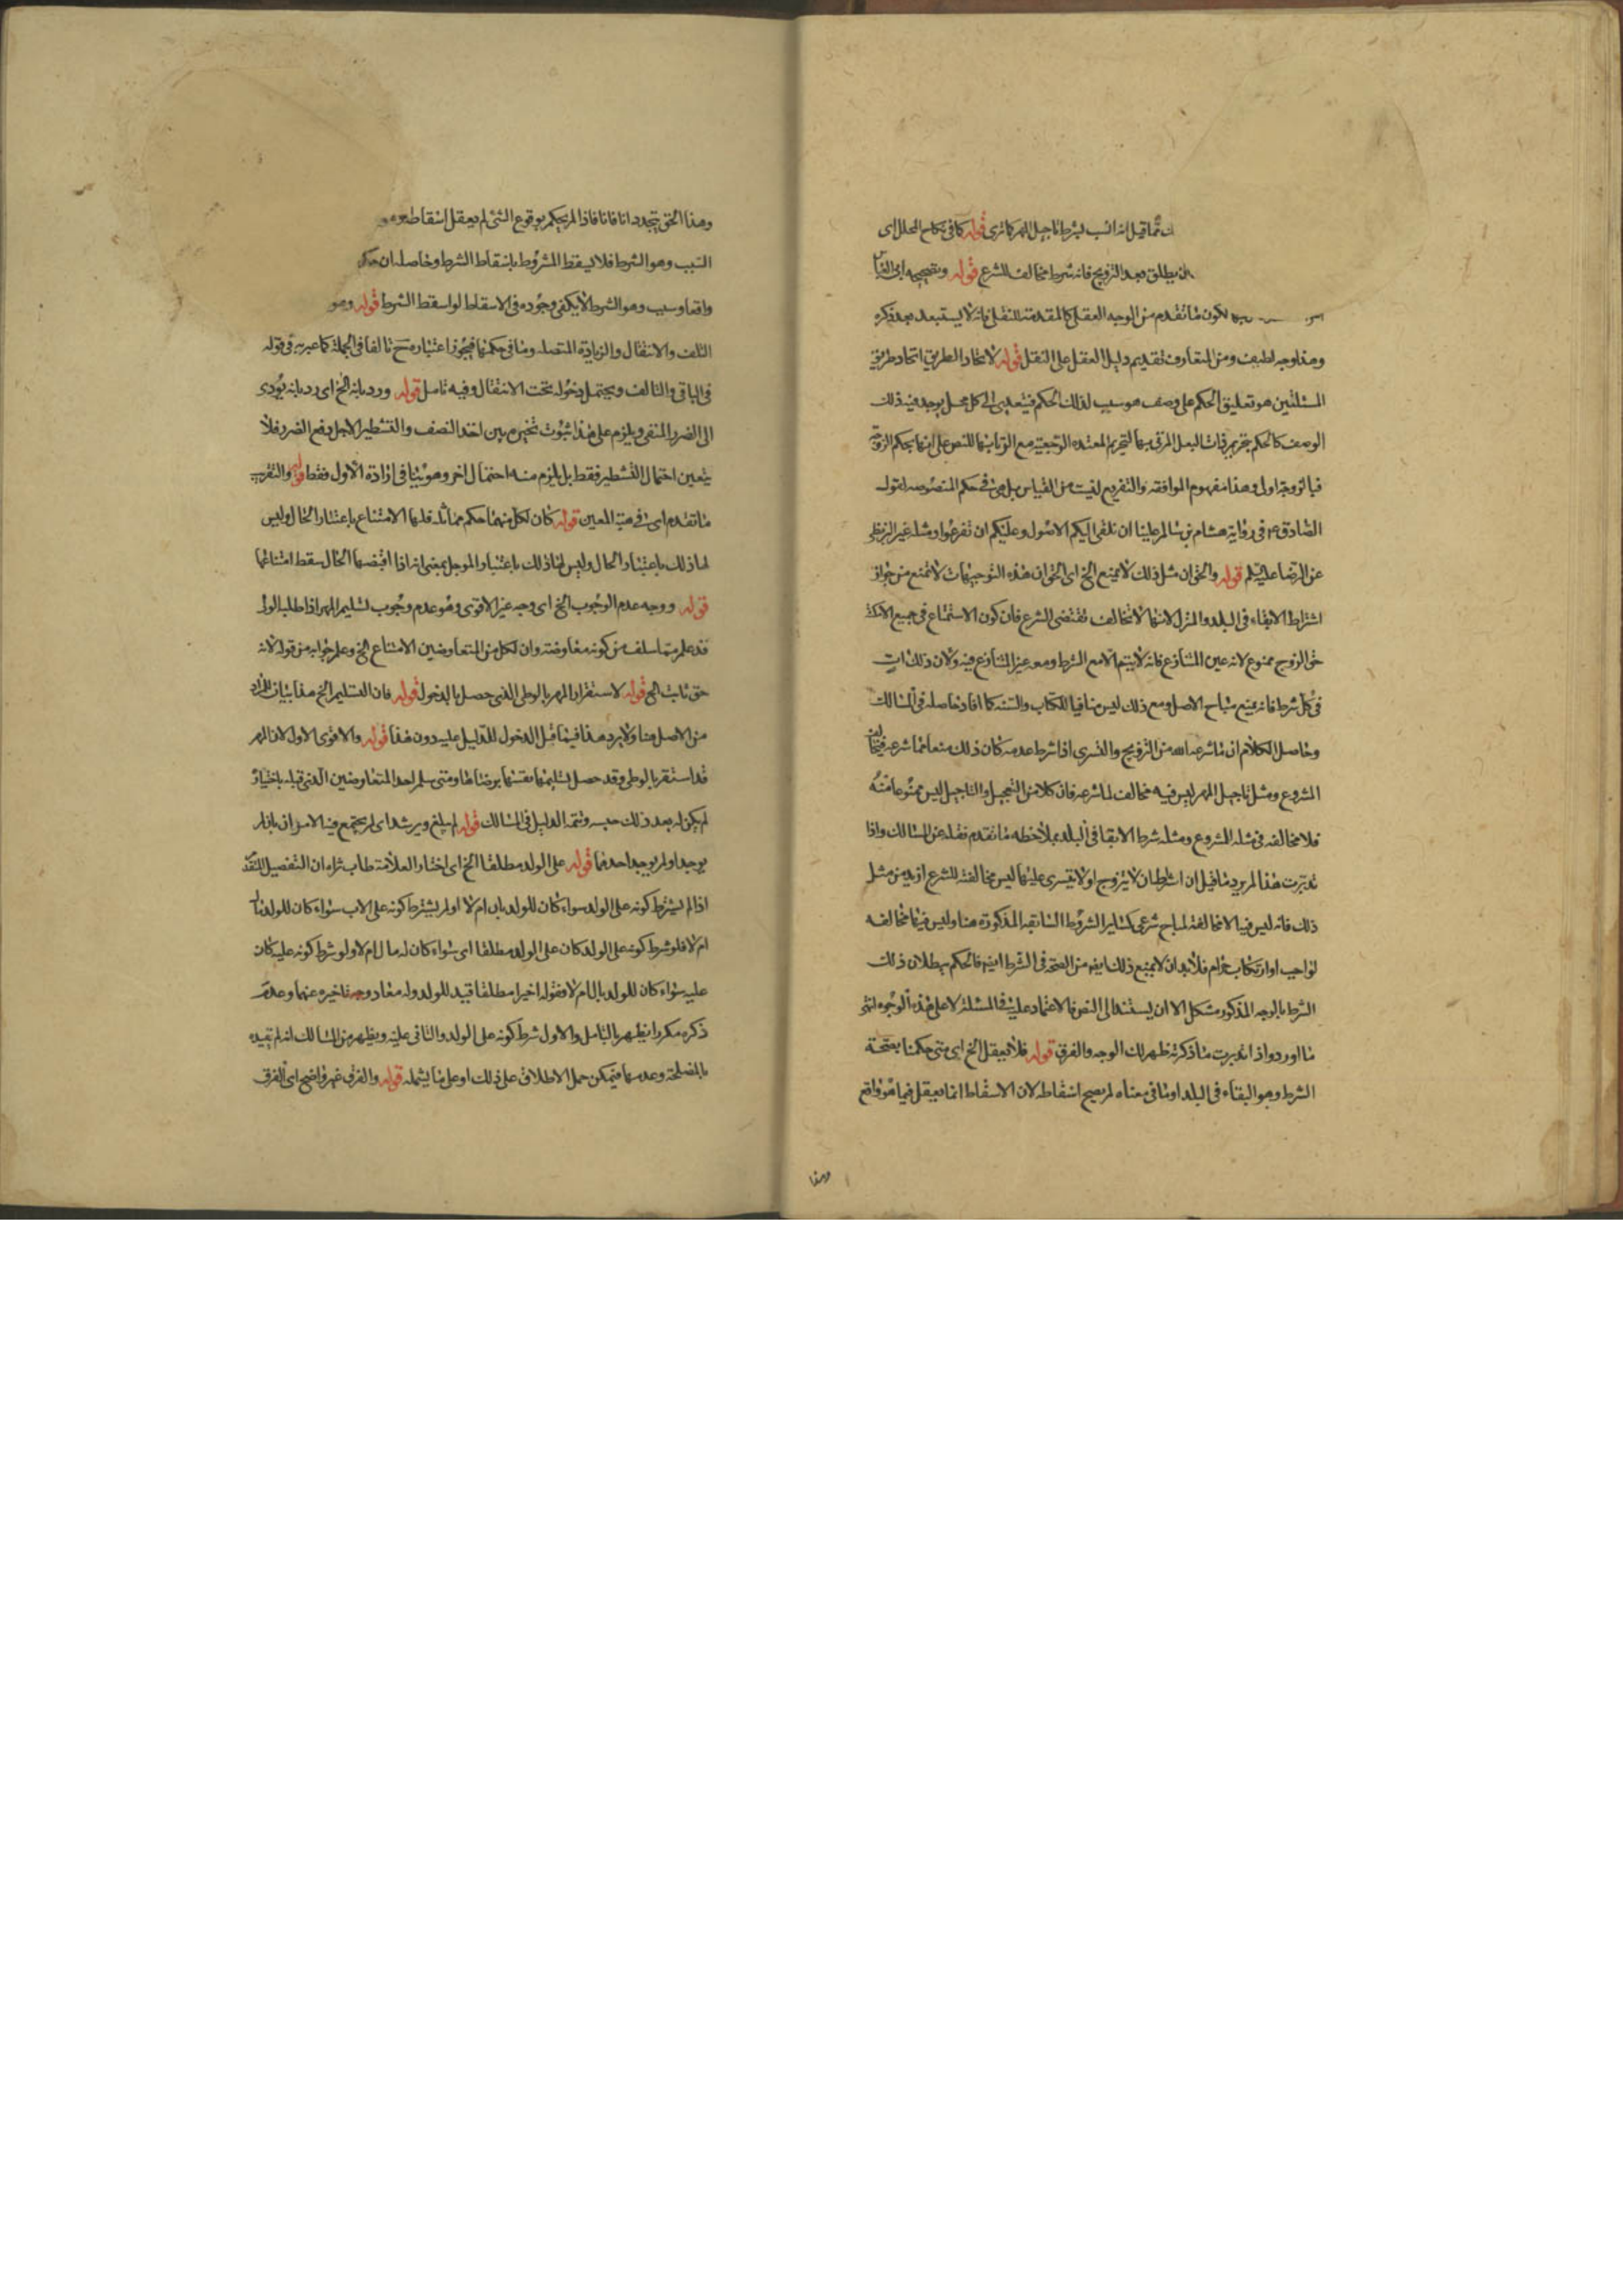 ان ما قيل انه انسب بشرط تاجيل المهر كما ترى قوله كما فى نكاح المحلل اى
ان يطلق بعد التزويج فانه شرط مخالف للشرع قوله
يكون ما تقدم من الوجه العقلى كالمقدمة للنقلى فانه لا يستبعد بعد ذكره
وهذا وجه لطيف ومن المتعارف تقديم دليل العقل على النقل قوله لاتحاد الطريق اتحاد طريق
المسئلتين هو تعليق الحكم على وصف هو سبب لذلك الحكم فيتعدى الى كل محل يوجد فيه ذلك
الوصف كالحكم بتحريم ذات البعل المزنى بها لتحريم المعتدة الرجعية مع الزنا بها للنص على انها بحكم الزوجة
فبالزوجة اولى وهذا مفهوم الموافقه والتفريع ليست من القياس بل هى فى حكم المنصوصه لقول
الصادق ع فى رواية هشام بن سالم علينا ان نلقى اليكم الاصول وعليكم ان تفرعوا ومثله عن البزنطى
عن الرضا عليه السلم قوله والحق ان مثل ذلك لا يمنع الخ اى الحق ان هذه التوجيهات لا تمنع من جواز
اشتراط الابقاء فى البلد والمنزل لانها لا تخالف مقتضى الشرع فان كون الاستمتاع فى جميع الامكنة
حق الزوج ممنوع لانه عين المتنازع فانه لا يتم الا مع الشرط وهو عين المتنازع فيه ولان ذلك ات
فى كل شرط فانه يمنع مباح الاصل ومع ذلك ليس منافيا للكتاب والسنه كما افاد حاصله فى المسالك
وحاصل الكلام ان ما شرعه الله من التزويج والتسرى اذا شرط عدمه كان ذلك منعا مما شرعه
المشروع ومثل تاجيل المهر ليس فيه مخالف لما شرعه فان كلا من التعجيل والتاجيل ليس ممنوعا منه
فلا مخالفه فى مثله المشروع ومثله شرط الابقا فى البلد بملاحظه ما تقدم نقله عن المسالك واذا
تدبرت هذا لم يرد ما قيل ان اشتراط ان لا يتزوج او لا يتسرى عليها ليس مخالفته للشرع ازيد من مثل
ذلك فانه ليس فيه الا مخالفة لمباح شرعى كسائر الشروط السابقه المذكورة هنا وليس فيها مخالفه
لواجب او ارتكاب حرام فلا بد ان لا يمنع ذلك ايضا من الصحة فى الشرط ايضا فالحكم ببطلان ذلك
الشرط بالوجه المذكور مشكل الا ان يستند الى النص فالاعتماد عليه فى المسئلة لا على هذه الوجوه انتهى
ما اورد واذا تدبرت ما ذكرته ظهر لك الوجه والفرق قوله فلا يعقل الخ اى متى حكمنا بصحة
الشرط وهو البقاء فى البلد او ما فى معناه لم يصح اسقاطه لان الاسقاط انما يعقل فيما هو واقع
وهذا
وهذا الحق يتجدد انا فانا فاذا لم يحكم بوقوع الشئ لم يعقل اسقاطه
السبب وهو الشرط فلا يسقط المشروط باسقاط الشرط وحاصله ان
واقعا وسبب وهو الشرط لا يكفى وجوده فى الاسقاط لو اسقط الشرط قوله وهو
التلف والانتقال والزيادة المتصله وما فى حكمها فيجوز اعتباره ح تالفا فى الجملة كما عبر به فى قوله
فى الباقى والتالف ويحتمل دخوله تحت الانتقال وفيه تامل قوله ورد بانه الخ اى رد بانه يؤدى
الى الضرر المنفى ويلزم على هذا ثبوت تخيره بين اخذ النصف والتشطير لاجل دفع الضرر فلا
يتعين احتمال التشطير فقط بل يلزم منه احتمال اخر وهو ينافى ارادة الاول فقط قوله والتقريب
ما تقدم اى فى هبة المعين قوله كان لكل منهما حكم مماثله فلها الامتناع باعتبار الحال وليس
لها ذلك باعتبار الحال وليس لها ذلك باعتبار المؤجل بمعنى انه اذا اقبضها الحال سقط امتناعها
قوله ووجه عدم الوجوب الخ اى وجه غير الاقوى وهو عدم وجوب تسليم المهر اذا طلبه الولى
قد علم مما سلف من كونه معاوضة وان لكل من المتعاوضين الامتناع الخ وعلم جوابه من قوله لانه
حق ثابت الخ قوله لاستقرار المهر بالوطى الذى حصل بالدخول قوله فان التسليم الخ هذا بيان المراد
من الاصل هنا ولا يرد هذا فيما قبل الدخول للدليل عليه دون هذا قوله والاقوى الاول لان المهر
قد استقر بالوطى وقد حصل تسليمها نفسها برضاها ومتى سلم احد المتعاوضين الذى قبله باختياره
لم يكن له بعد ذلك حبسه وتتمة الدليل فى المسالك قوله لم يبلغ ويرشد اى لم يجتمع فيه الامران بان لم
يوجدا ولم يوجد احدهما قوله على الولد مطلقا الخ اى اختار العلامة طاب ثراه ان التفصيل المتقدم
اذا لم يشترط كونه على الولد سواء كان للولد مال ام لا او لم يشترط كونه على الاب سواء كان للولد مال
ام لا فلو شرط كونه على الولد كان على الولد مطلقا اى سواء كان له مال ام لا ولو شرط كونه عليه كان
عليه سواء كان للولد مال ام لا فقوله اخيرا مطلقا قيد للولد وله معا ووجه تاخيره عنهما وعدم
ذكره مكررا يظهر بالتامل والاول شرط كونه على الولد والثانى عليه ويظهر من المسالك انه لم يقيده
بالمصلحة وعدمها فيمكن حمل الاطلاق على ذلك او على ما يشمله قوله والفرق غير واضح اى الفرق